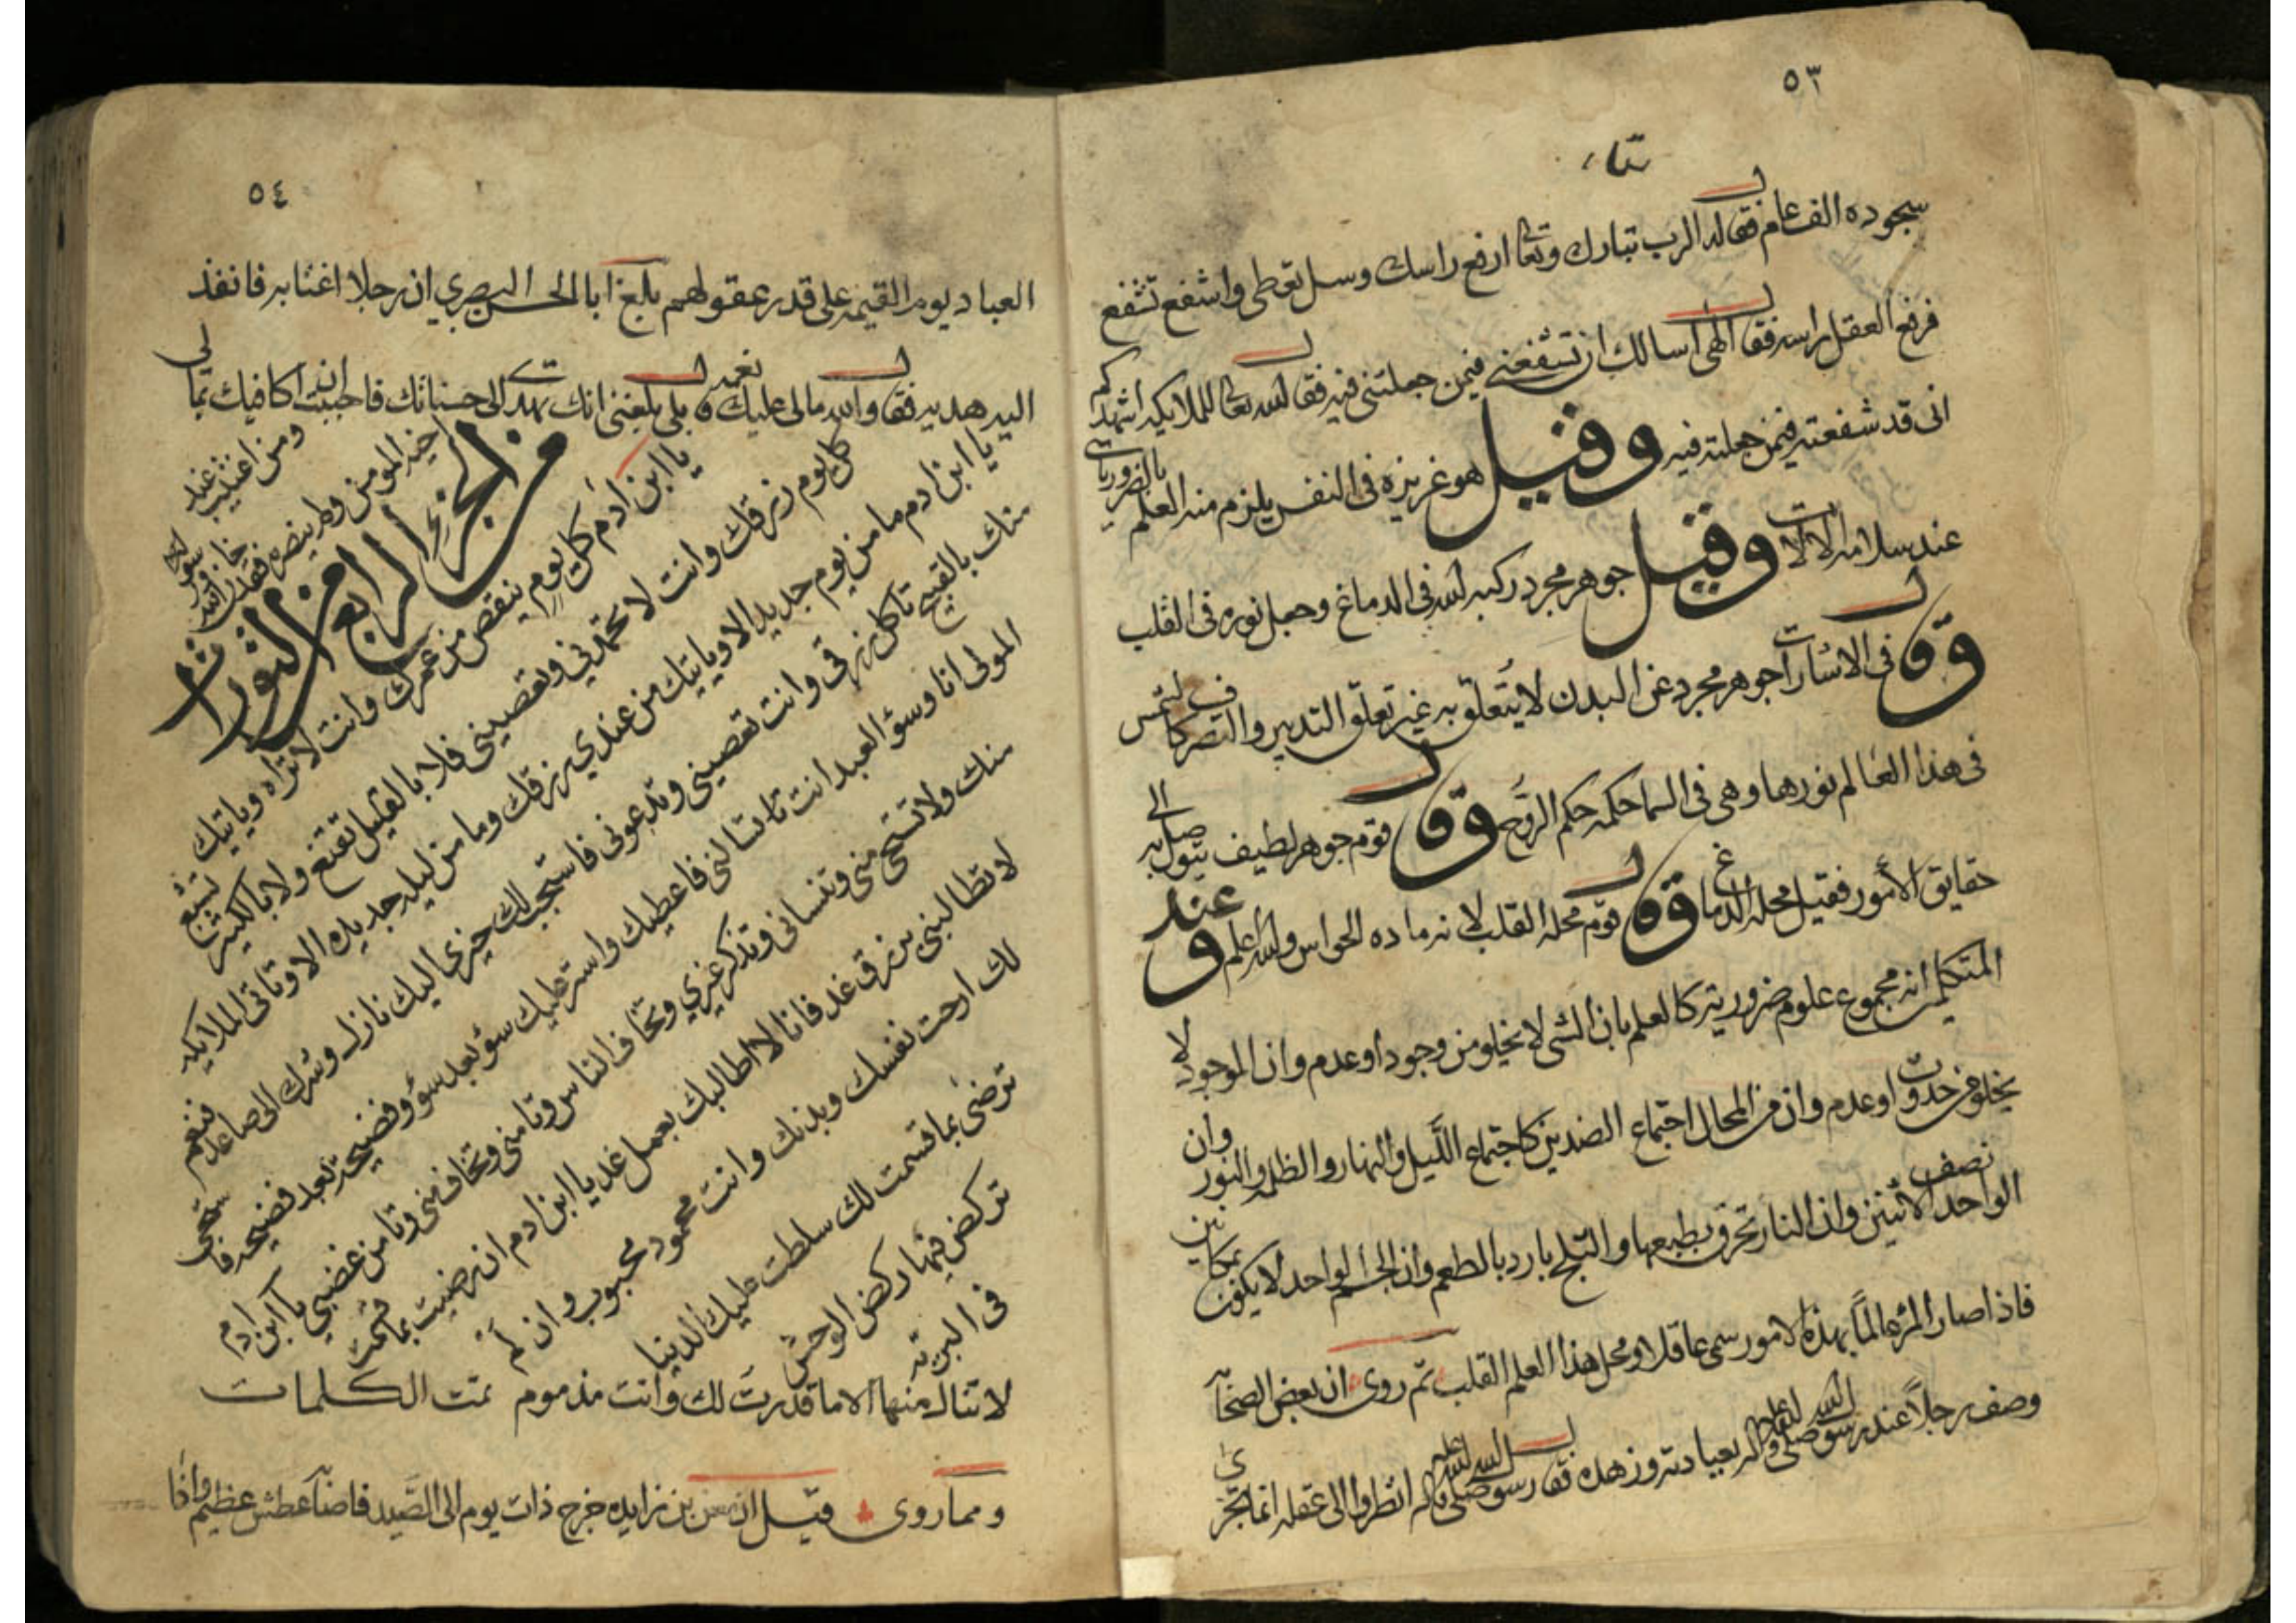 ٥٣
سجوده الف عام فقال له الرب تبارك وتعالى ارفع راسك وسل تعطى واشفع تشفع
فرفع العقل راسه فقال الهى اسالك ان تشفعنى فيمن جعلتنى فيه فقال الله تعالى للملايكه اشهدكم
انى قد شفعته فيمن جعلته فيه وقيل هو غريزه فى النفس يلزم منه العلم بالضروريات
عند سلامه الالات وقيل جوهر مجرد ركبه الله فى الدماغ وجعل نوره فى القلب
وقال فى الاشارات جوهر مجرد عن البدن لا يتعلق به غير تعلق التدبير والتصرف كالشمس
فى هذا العالم نورها وهى فى السما حكمه حكم الروح وقال قوم جوهر لطيف يتوصل به الى
حقايق الأمور فقيل محله الدماغ وقال قوم محله القلب لانه ماده الحواس والله أعلم وعند
المتكلمين انه مجموع علوم ضروريه كالعلم بان الشى لا يخلو من وجود او عدم وان الموجود لا
يخلو من حدوث او عدم وان من المحال اجتماع الضدين كاجتماع الليل والنهار والظلمه والنور وان
الواحد نصف الاثنين وان النار تحرق بطبعها والثلج بارد بالطعم وان الجسم الواحد لا يكون بمكانين
فاذا صار المرء عالمًا بهذه الامور سمى عاقلا ومحل هذا العلم القلب ثم روى ان بعض الصحابه
وصف رجلاً عند رسول الله صلى الله عليه واله بعبادته وزهده فقال رسول الله صلى الله عليه واله انظروا الى عقله انما يجزى
٥٤
العباد يوم القيمه على قدر عقولهم بلغ ابا الحسن البصري ان رجلا اغتابه فانفذ
اليه هديه فقال والله مالى عليك نعمه قال بلى بلغنى انك تهدى الى حسناتك فاحببت ان اكافيك بما لى
ومن اغتيب عنده
اخيه المومن ولم ينصره فقد خان الله ورسوله
من الجزء الرابع من التوراه
يا ابن ادم كل يوم ينقص من عمرك وانت لا تراه وياتيك
كل يوم رزقك وانت لا تحمدني وتعصيني فلا بالقليل تقنع ولا بالكثير تشبع
يا ابن ادم ما من يوم جديد الا وياتيك من عندي رزقك وما من ليله جديده الا وتاتى الملايكه
منك بالقبيح تاكل رزقى وانت تعصينى وتدعونى فاستجيب لك خيرى اليك نازل وشرك الى صاعد فنعم
المولى انا وسؤ العبد انت تسالنى فاعطيك واستر عليك سؤ بعد سؤ وفضيحه بعد فضيحه فاستحى
منك ولا تستحى منى وتنسانى وتذكر غيري وتخاف الناس وتامنى وتخاف منى وتامن غضبي يا ابن ادم
لا تطالبنى برزق غد فانا لا اطالبك بعمل غد يا ابن ادم ان رضيت بما قسمت
لك ارحت نفسك وبدنك وانت محمود محبوب وان لم
ترضى بما قسمت لك سلطت عليك الدنيا
تركض فيها ركض الوحش
فى البريه
لا تنال منها الا ما قدرت لك وانت مذموم تمت الكلمات
ومما روى قيل ان معن بن زايده خرج ذات يوم الى الصيد فاصابه عطش عظيم واذا